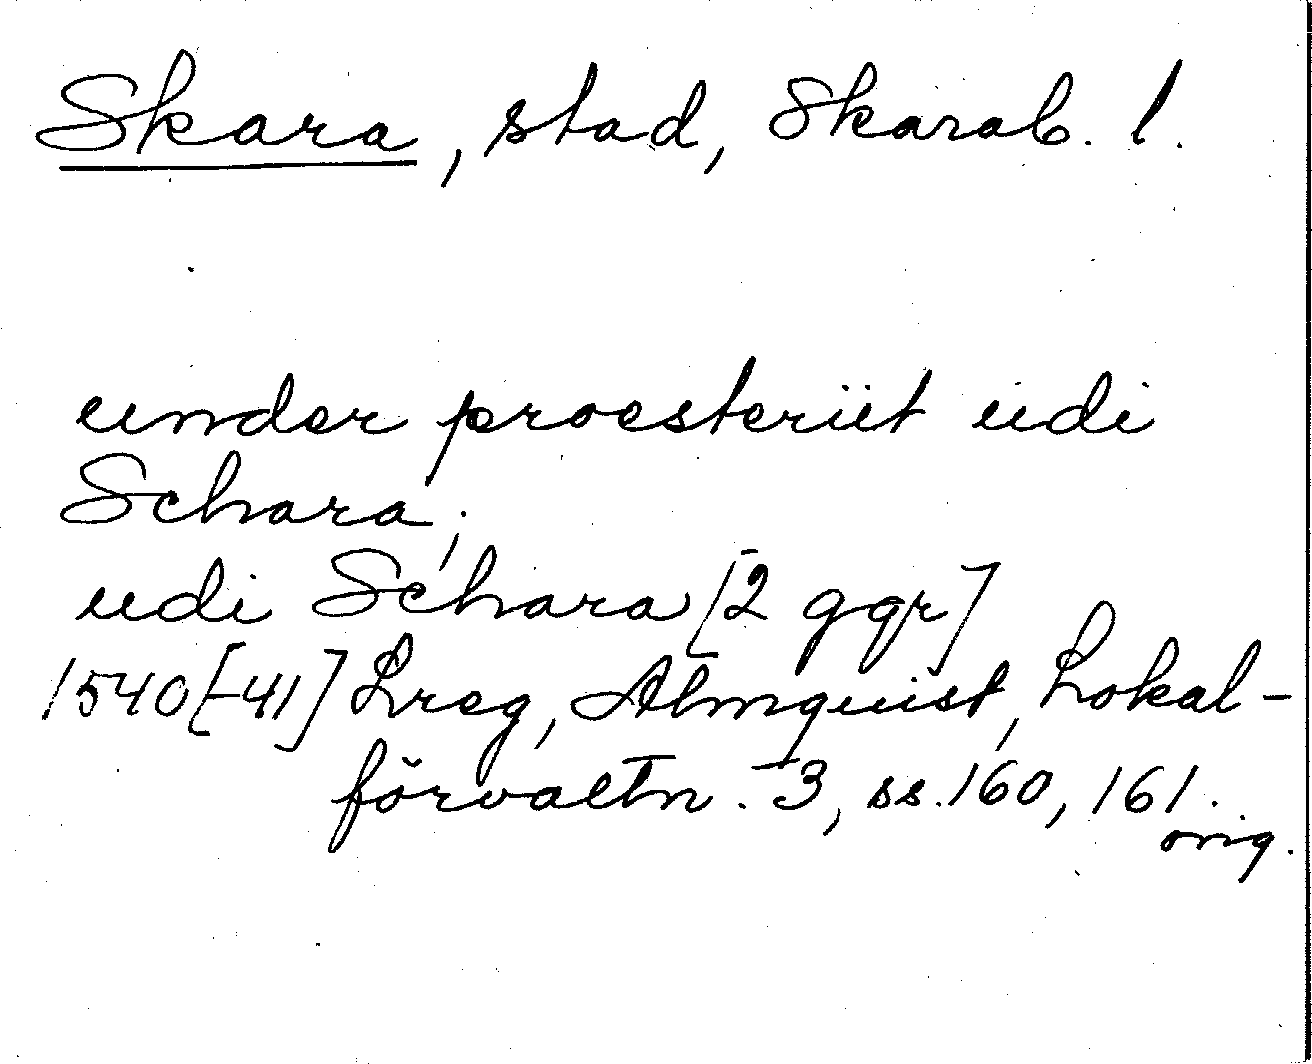 Skara, stad, Skarab. l.
under proesteriit udi
Schara;
udi Schara [2 ggr]
1540[-41] Lreg, Almquist, Lokal-
förvaltn. 3, ss. 160, 161.
orig.